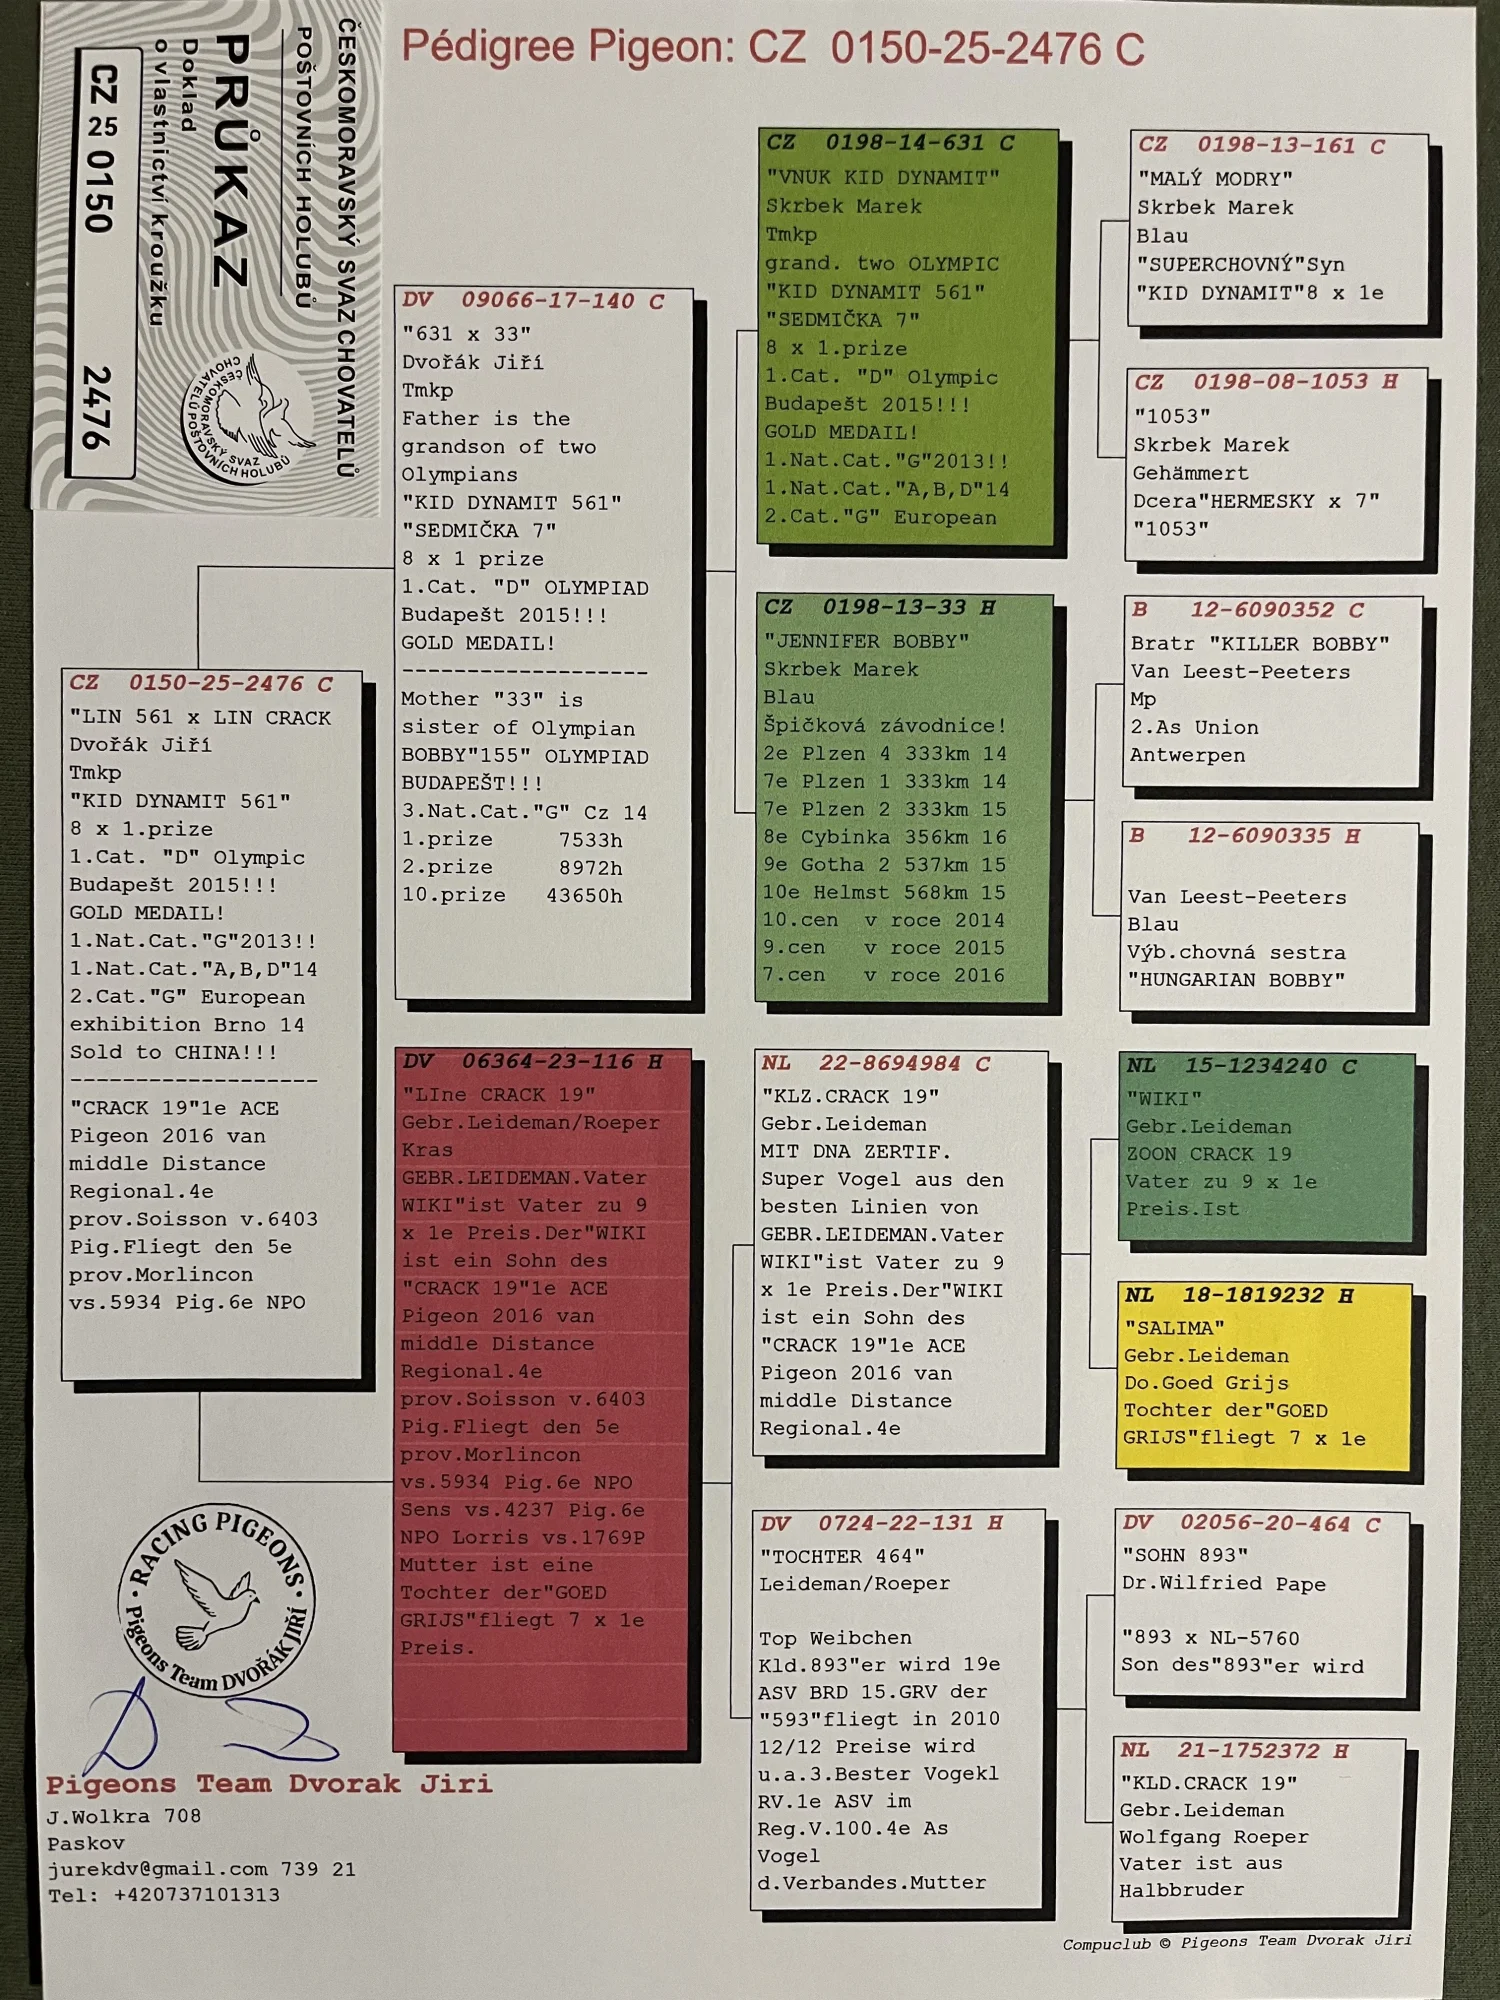 Pédigree Pigeon: CZ 0150-25-2476 C
ČESKOMORAVSKÝ SVAZ CHOVATELŮ
POŠTOVNÍCH HOLUBŮ
PRŮKAZ
Doklad
o vlastnictví kroužku
CZ 25 0150 2476
ČESKOMORAVSKÝ SVAZ
CHOVATELŮ POŠTOVNÍCH HOLUBŮ
CZ 0150-25-2476 C
"LIN 561 x LIN CRACK
Dvořák Jiří
Tmkp
"KID DYNAMIT 561"
8 x 1.prize
1.Cat. "D" Olympic
Budapešt 2015!!!
GOLD MEDAIL!
1.Nat.Cat."G"2013!!
1.Nat.Cat."A,B,D"14
2.Cat."G" European
exhibition Brno 14
Sold to CHINA!!!
-------------------
"CRACK 19"1e ACE
Pigeon 2016 van
middle Distance
Regional.4e
prov.Soisson v.6403
Pig.Fliegt den 5e
prov.Morlincon
vs.5934 Pig.6e NPO
DV 09066-17-140 C
"631 x 33"
Dvořák Jiří
Tmkp
Father is the
grandson of two
Olympians
"KID DYNAMIT 561"
"SEDMIČKA 7"
8 x 1 prize
1.Cat. "D" OLYMPIAD
Budapešt 2015!!!
GOLD MEDAIL!
-------------------
Mother "33" is
sister of Olympian
BOBBY"155" OLYMPIAD
BUDAPEŠT!!!
3.Nat.Cat."G" Cz 14
1.prize 7533h
2.prize 8972h
10.prize 43650h
DV 06364-23-116 H
"LIne CRACK 19"
Gebr.Leideman/Roeper
Kras
GEBR.LEIDEMAN.Vater
WIKI"ist Vater zu 9
x 1e Preis.Der"WIKI
ist ein Sohn des
"CRACK 19"1e ACE
Pigeon 2016 van
middle Distance
Regional.4e
prov.Soisson v.6403
Pig.Fliegt den 5e
prov.Morlincon
vs.5934 Pig.6e NPO
Sens vs.4237 Pig.6e
NPO Lorris vs.1769P
Mutter ist eine
Tochter der"GOED
GRIJS"fliegt 7 x 1e
Preis.
CZ 0198-14-631 C
"VNUK KID DYNAMIT"
Skrbek Marek
Tmkp
grand. two OLYMPIC
"KID DYNAMIT 561"
"SEDMIČKA 7"
8 x 1.prize
1.Cat. "D" Olympic
Budapešt 2015!!!
GOLD MEDAIL!
1.Nat.Cat."G"2013!!
1.Nat.Cat."A,B,D"14
2.Cat."G" European
CZ 0198-13-33 H
"JENNIFER BOBBY"
Skrbek Marek
Blau
Špičková závodnice!
2e Plzen 4 333km 14
7e Plzen 1 333km 14
7e Plzen 2 333km 15
8e Cybinka 356km 16
9e Gotha 2 537km 15
10e Helmst 568km 15
10.cen v roce 2014
9.cen v roce 2015
7.cen v roce 2016
NL 22-8694984 C
"KLZ.CRACK 19"
Gebr.Leideman
MIT DNA ZERTIF.
Super Vogel aus den
besten Linien von
GEBR.LEIDEMAN.Vater
WIKI"ist Vater zu 9
x 1e Preis.Der"WIKI
ist ein Sohn des
"CRACK 19"1e ACE
Pigeon 2016 van
middle Distance
Regional.4e
DV 0724-22-131 H
"TOCHTER 464"
Leideman/Roeper
Top Weibchen
Kld.893"er wird 19e
ASV BRD 15.GRV der
"593"fliegt in 2010
12/12 Preise wird
u.a.3.Bester Vogekl
RV.1e ASV im
Reg.V.100.4e As
Vogel
d.Verbandes.Mutter
CZ 0198-13-161 C
"MALÝ MODRY"
Skrbek Marek
Blau
"SUPERCHOVNÝ"Syn
"KID DYNAMIT"8 x 1e
CZ 0198-08-1053 H
"1053"
Skrbek Marek
Gehämmert
Dcera"HERMESKY x 7"
"1053"
B 12-6090352 C
Bratr "KILLER BOBBY"
Van Leest-Peeters
Mp
2.As Union
Antwerpen
B 12-6090335 H
Van Leest-Peeters
Blau
Výb.chovná sestra
"HUNGARIAN BOBBY"
NL 15-1234240 C
"WIKI"
Gebr.Leideman
ZOON CRACK 19
Vater zu 9 x 1e
Preis.Ist
NL 18-1819232 H
"SALIMA"
Gebr.Leideman
Do.Goed Grijs
Tochter der"GOED
GRIJS"fliegt 7 x 1e
DV 02056-20-464 C
"SOHN 893"
Dr.Wilfried Pape
"893 x NL-5760
Son des"893"er wird
NL 21-1752372 H
"KLD.CRACK 19"
Gebr.Leideman
Wolfgang Roeper
Vater ist aus
Halbbruder
RACING PIGEONS
Pigeons Team DVOŘÁK JIŘÍ
Pigeons Team Dvorak Jiri
J.Wolkra 708
Paskov
jurekdv@gmail.com 739 21
Tel: +420737101313
Compuclub © Pigeons Team Dvorak Jiri